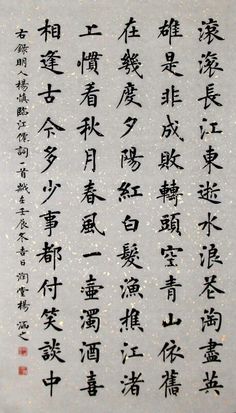 滾滾長江東逝水浪花淘盡英
雄是非成敗轉頭空青山依舊
在幾度夕陽紅白髮漁樵江渚
上慣看秋月春風一壺濁酒喜
相逢古今多少事都付笑談中
右錄明人楊慎臨江僊詞一首歲在壬辰冬吉日潤堂楊涵之